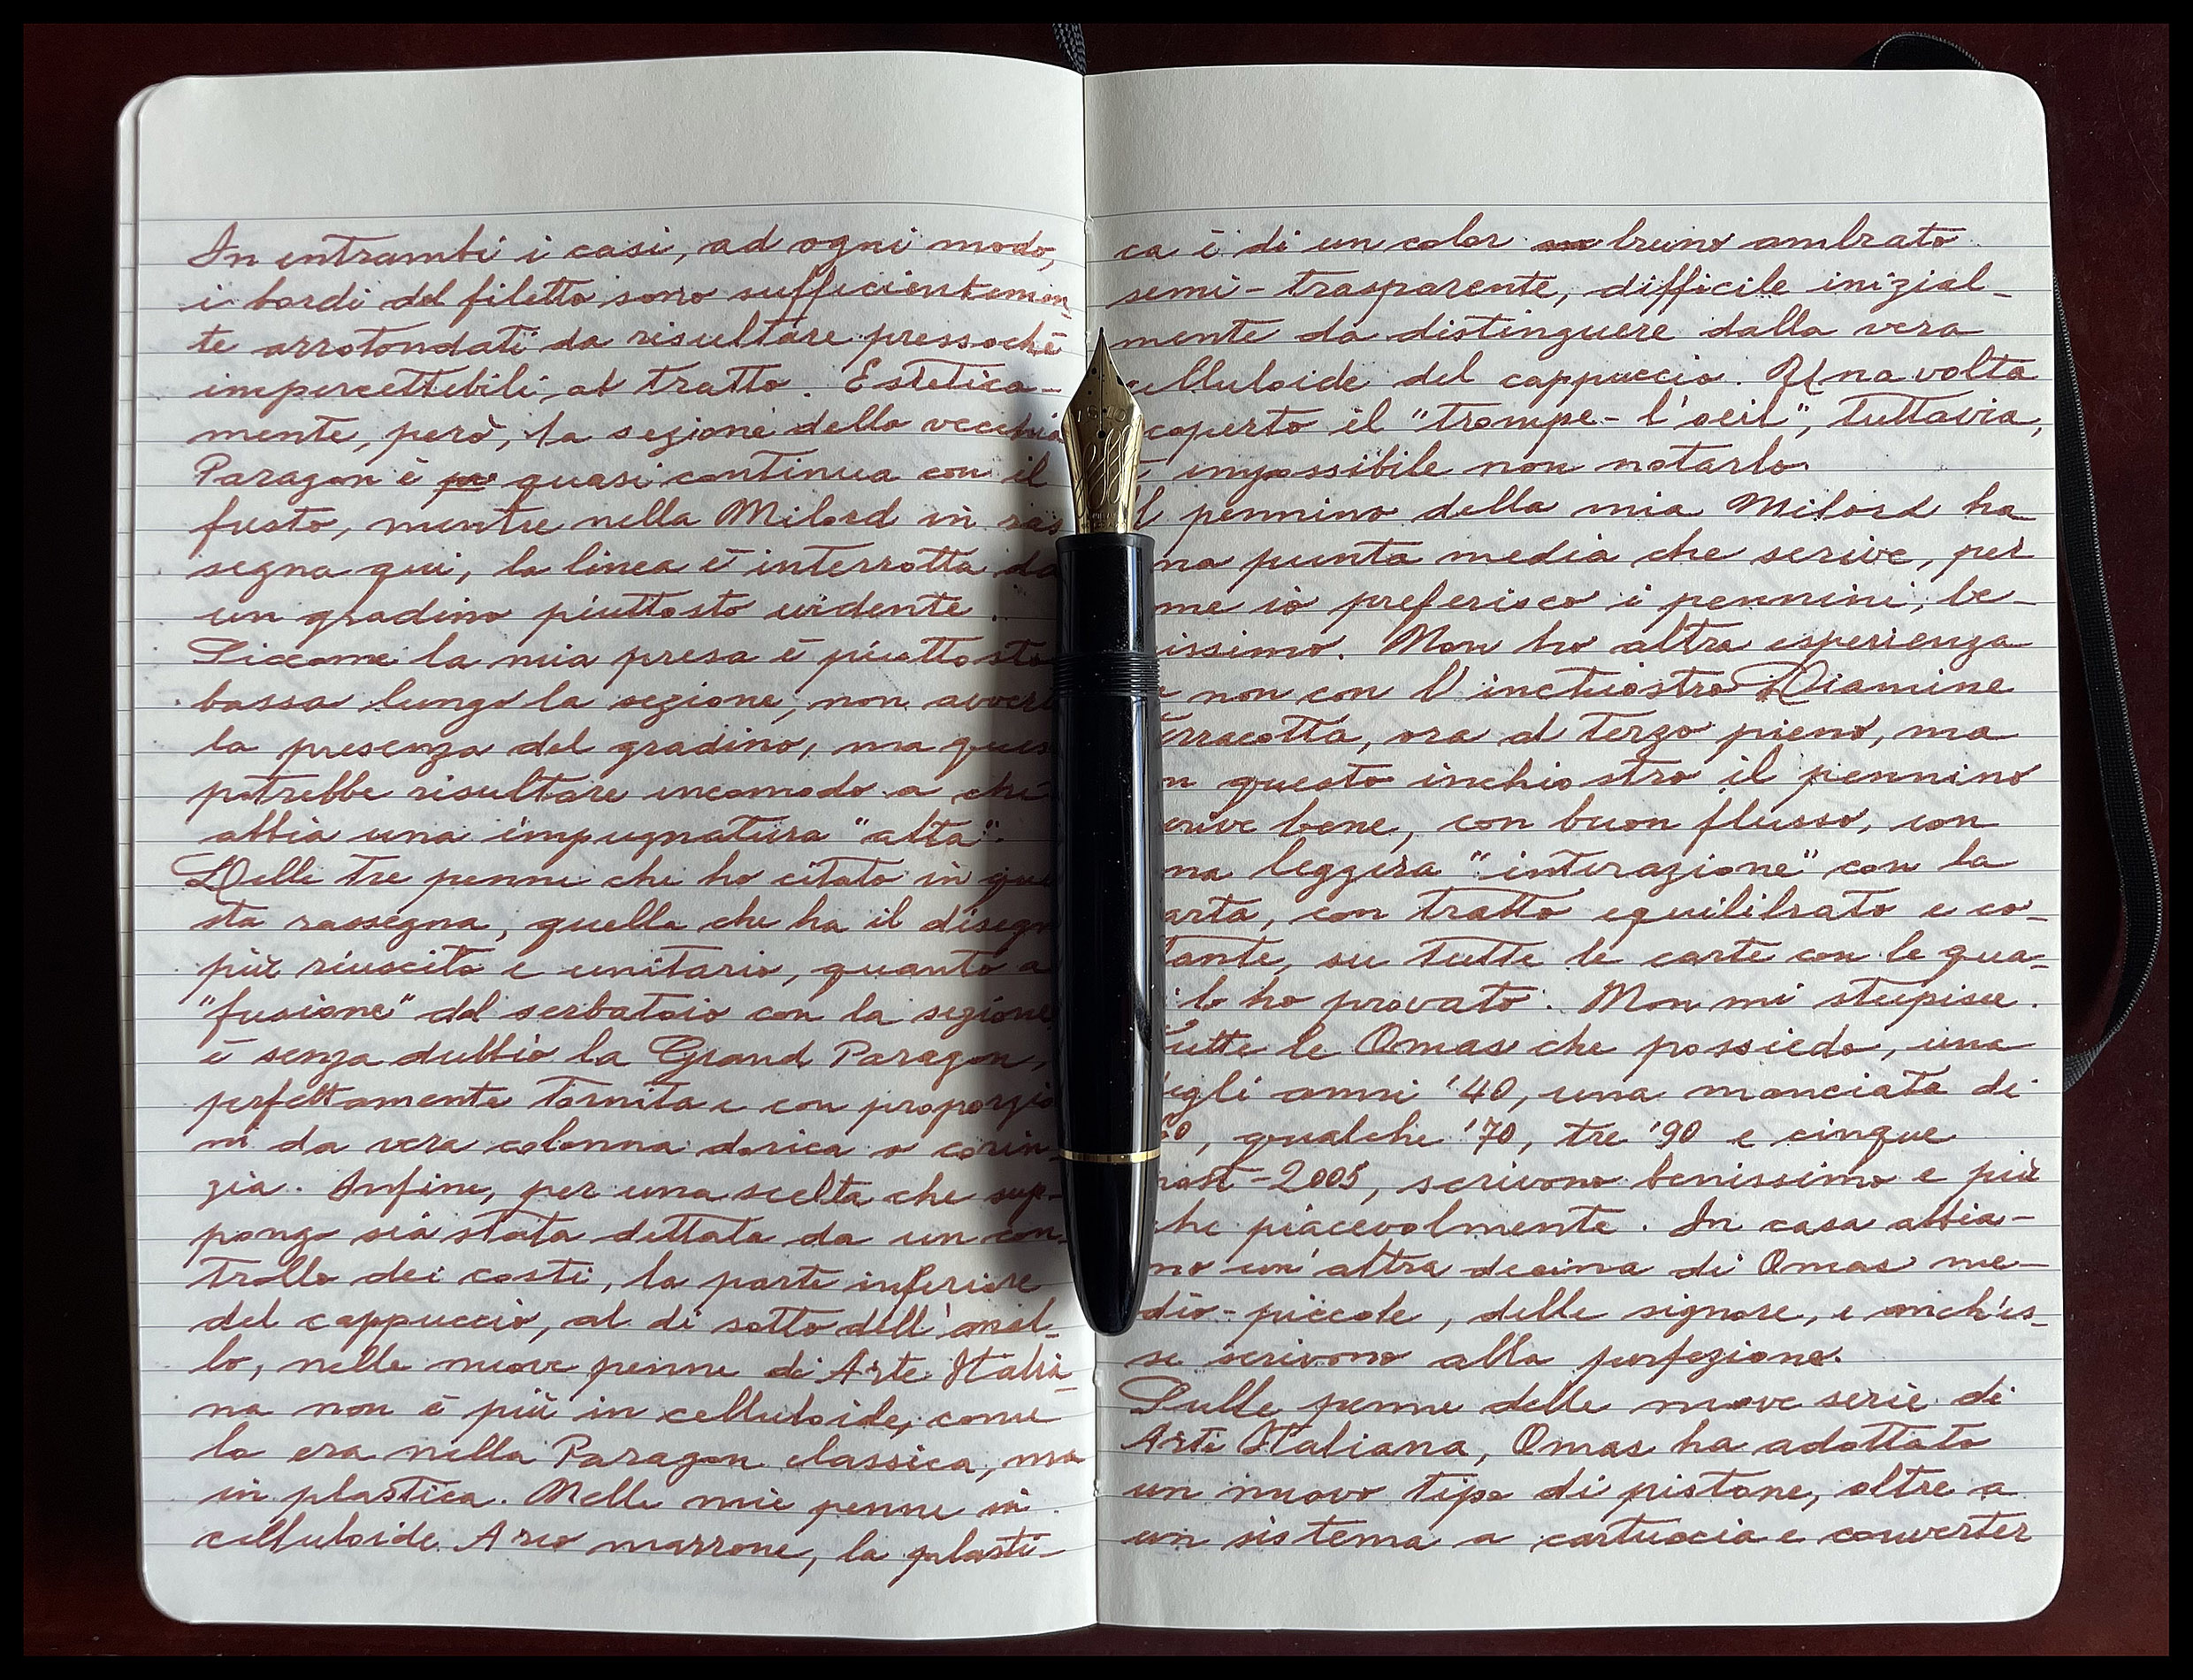 In entrambi i casi, ad ogni modo,
i bordi del filetto sono sufficientemen
te arrotondati da risultare pressoché
impercettibili al tratto. Estetica-
mente, però, la sezione della vecchia
Paragon è quasi continua con il
fusto, mentre nella Milord in ras
segna qui, la linea è interrotta da
un gradino piuttosto evidente.
Siccome la mia presa è piuttosto
bassa lungo la sezione, non avvert
la presenza del gradino, ma ques
potrebbe risultare incomodo a chi
abbia una impugnatura "alta".
Delle tre penne che ho citato in que
sta rassegna, quella che ha il disegn
più riuscito e unitario, quanto a
"fusione" del serbatoio con la sezione
è senza dubbio la Grand Paragon,
perfettamente tornita e con proporzio
ni da vera colonna dorica o corin-
zia. Infine, per una scelta che sup-
pongo sia stata dettata da un con-
trollo dei costi, la parte inferiore
del cappuccio, al di sotto dell'anel-
lo, nelle nuove penne di Arte Italia-
na non è più in celluloide, come
lo era nella Paragon classica, ma
in plastica. Nelle mie penne in
celluloide Arco marrone, la plasti-
ca è di un color bruno ambrato
semi-trasparente, difficile inizial-
mente da distinguere dalla vera
elluloide del cappuccio. Una volta
coperto il "trompe-l'oeil", tuttavia,
è impossibile non notarlo.
l pennino della mia Milord ha
na punta media che scrive, per
me io preferisco i pennini, be-
issimo. Non ho altra esperienza
non con l'inchiostro Diamine
erracotta, ora al terzo pieno, ma
n questo inchiostro il pennino
crive bene, con buon flusso, con
na leggera "interazione" con la
arta, con tratto equilibrato e co-
tante, su tutte le carte con le qua-
i lo ho provato. Non mi stupisce.
Tutte le Omas che possiedo, una
degli anni '40, una manciata di
60, qualche '70, tre '90 e cinque
post-2005, scrivono benissimo e più
che piacevolmente. In casa abbia-
mo un'altra decina di Omas me-
dio-piccole, delle signore, e anch'es-
se scrivono alla perfezione.
Sulle penne delle nuove serie di
Arte Italiana, Omas ha adottato
un nuovo tipo di pistone, oltre a
un sistema a cartuccia e converter